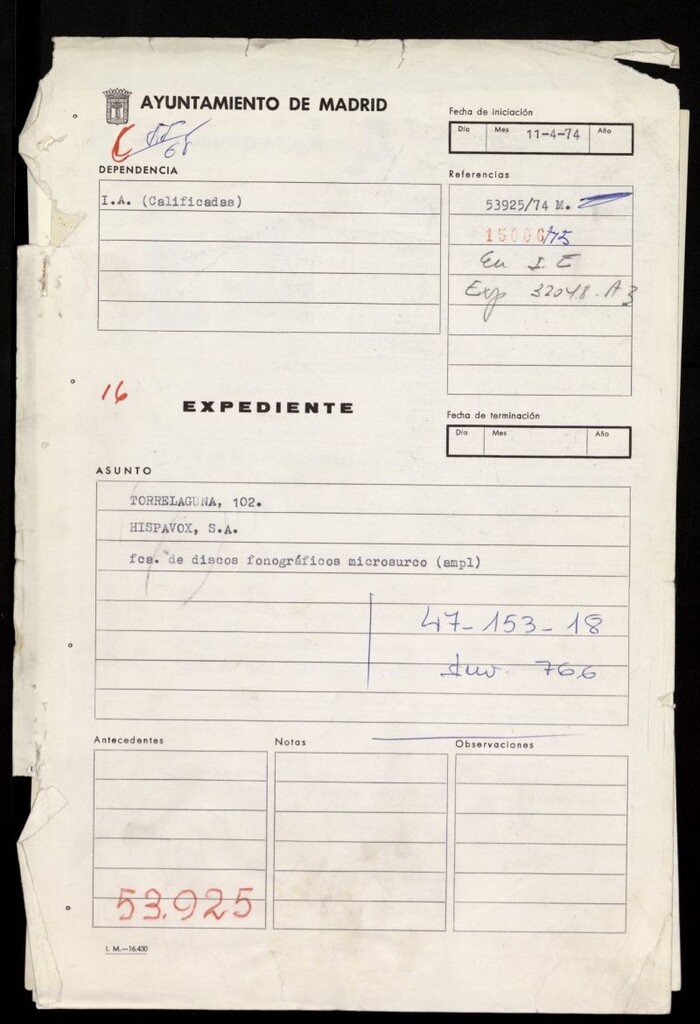 AYUNTAMIENTO DE MADRID
Fecha de iniciación
Día Mes 11-4-74 Año
DEPENDENCIA
I.A. (Calificadas)
Referencias
53925/74 M.
15006/75
En I. E
Exp 32048. A3
16
EXPEDIENTE
Fecha de terminación
Día Mes Año
ASUNTO
TORRELAGUNA, 102.
HISPAVOX, S.A.
fca. de discos fonográficos microsurco (ampl)
47-153-18
Inv. 766
Antecedentes
Notas
Observaciones
53.925
I. M.—16.430